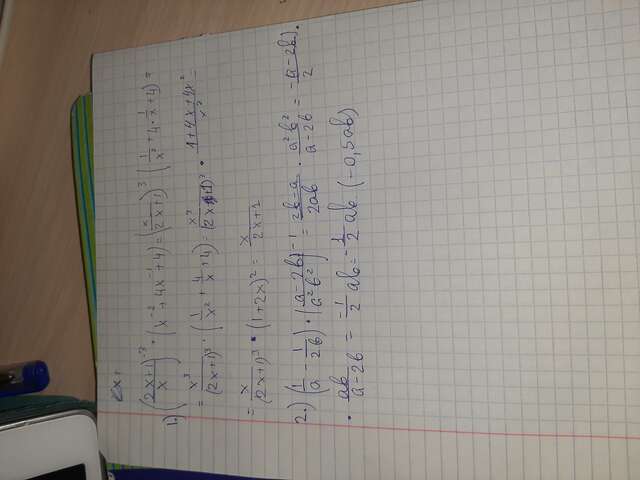 1.) ((2x+1)/x)^-3 • (x^-2 + 4x^-1 + 4) = (x/(2x+1))^3 (1/x^2 + 4 · 1/x + 4) =
= x^3/(2x+1)^3 · (1/x^2 + 4/x + 4) = x^3/(2x+1)^3 • (1+4x+4x^2)/x^2 =
= x/(2x+1)^3 • (1+2x)^2 = x/(2x+1)
2.) (1/a - 1/2b) • ((a-2b)/(a^2b^2))^-1 = (2b-a)/2ab · a^2b^2/(a-2b) = -(a-2b)/2 ·
• ab/(a-2b) = -1/2 ab = -1/2 ab (-0,5ab)